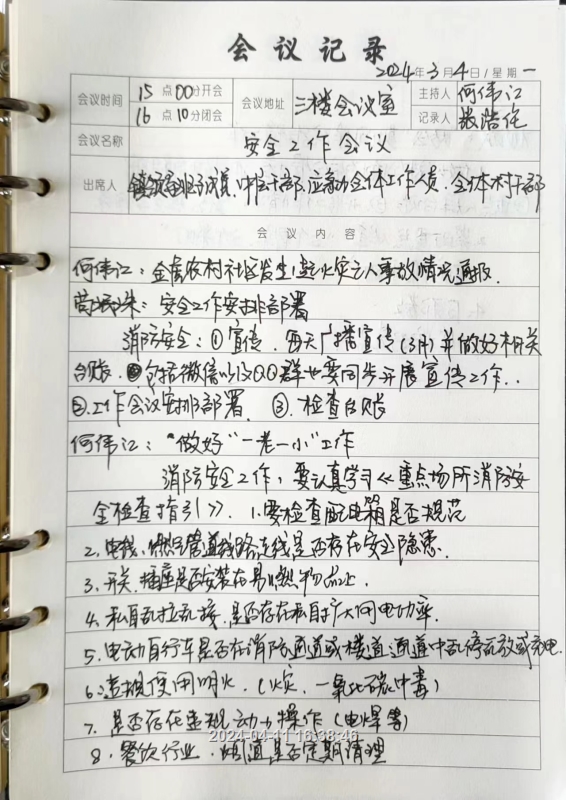 会议记录
2024年3月4日/星期一
会议时间 15点00分开会 16点10分闭会 会议地址 三楼会议室 主持人 何伟江 记录人 张浩
会议名称 安全工作会议
出席人 镇领导班子成员、中层干部、应急办全体工作人员、全体村干部
会议内容
何伟江：金虞农村社区发生1起火灾亡人事故情况通报。
安全工作安排部署
消防安全：①宣传，每天广播宣传(3月)并做好相关
台账．包括微信以及QQ群也要同步开展宣传工作．
②.工作会议安排部署 ③.检查台账
何伟江："做好"一老一小"工作
消防安全工作，要认真学习《重点场所消防安
全检查指引》．1.要检查配电箱是否规范
2.电线、燃气管道线路走线是否存在安全隐患.
3.开关、插座是否安装在易燃物品上．
4.私自乱拉乱接，是否存在私自扩大用电功率．
5.电动自行车是否在消防通道或楼道通道中乱停乱放或充电.
6.违规使用明火．(火灾、一氧化碳中毒)
7.是否存在违规动火操作(电焊等)
8.餐饮行业．烟道是否定期清理
2024-04-11 16:38:46